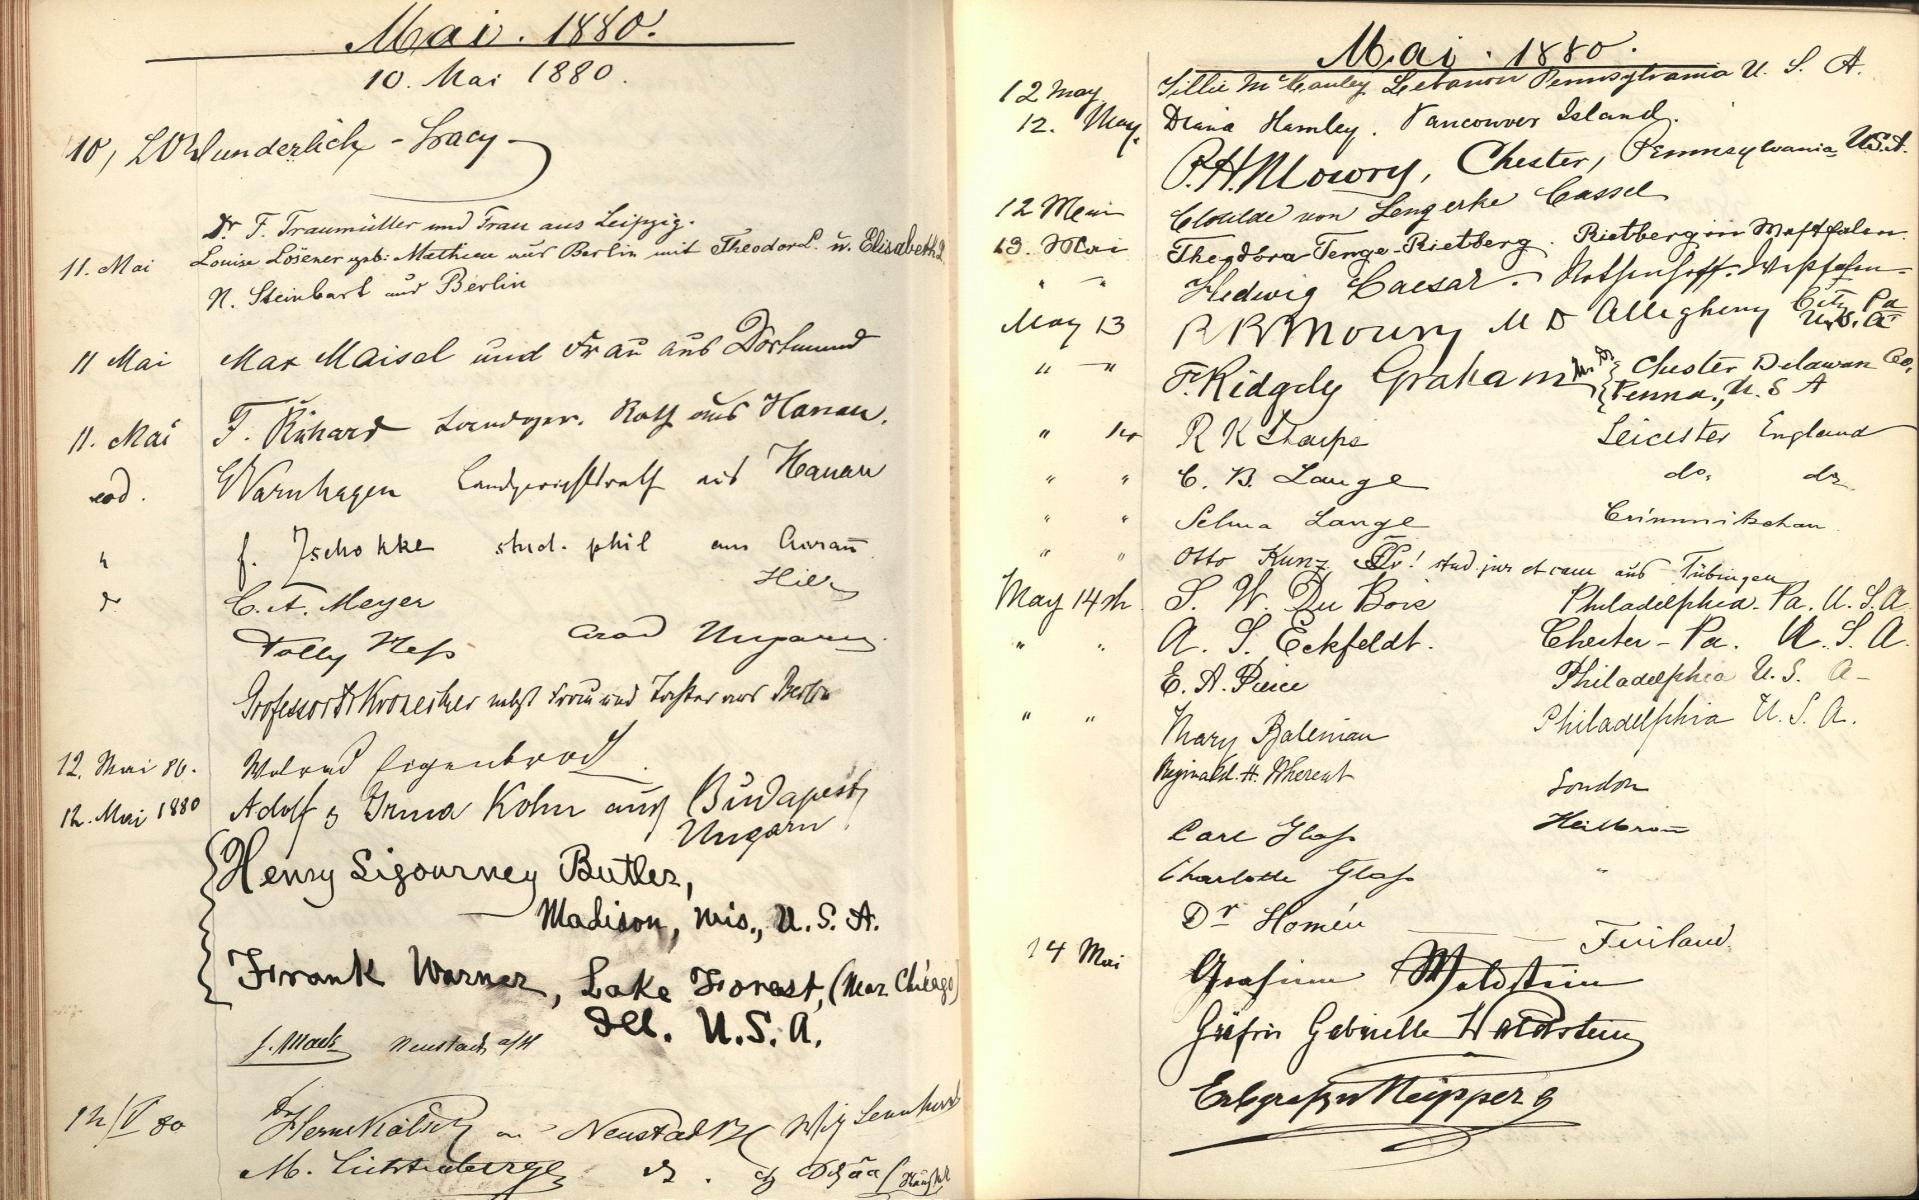 Mai. 1880.
10. Mai 1880.
10, Wunderlich - Tracy
Dr F. Traumüller und Frau aus Leipzig.
11. Mai Louise Lösener geb: Mathieu aus Berlin mit Theodor L. u. Elisabeth L.
N. Steinbart aus Berlin
11 Mai Max Maisel und Frau aus Dortmund
11. Mai F. Rühard Landger. Rath aus Hanau.
eod. Warnhagen Landgerichtsrath aus Hanau
" f. Zschokke stud. phil aus Aarau
C. A. Meyer
Polly Heß Arad Ungarn
Professor Dr Kronecker nebst Frau und Tochter aus Berlin
12. Mai 80. Eigenbrodt
12. Mai 1880 Adolf & Irma Kohn aus Budapest
Ungarn.
Henry Sigourney Butler,
Madison, Wis., U.S.A.
Frank Warner, Lake Forest, (Near Chicago)
Ill. U.S.A.
J. Mack Neustadt a/H
12/V 80 Neustadt
M.
Mai. 1880.
12 May Tillie McCauley Lebanon Pennsylvania U. S. A.
12. May. Diana Hamley. Vancouver Island.
P.H. Mowry, Chester, Pennsylvania U.S.A.
12 Mai Clotilde von Lengerke Cassel
13. Mai Theodora Tenge-Rietberg. Rietberg in Westfalen.
" " Hedwig Caesar. Rothenhoff. Westfalen
May 13 R B Mowry M D Allegheny City Pa
U.S.A
" " F. Ridgely Graham M.D. Chester Delaware Co,
Penna., U.S A
" R K Tharps Leicester England
" " C. B. Lange do. do
" " Selma Lange Crimmitschau
" " Otto Kunz stud. jur et cam aus Tübingen
May 14th S. W. Du Bois Philadelphia. Pa. U.S.A
" " A. S. Eckfeldt. Chester - Pa. U.S.A.
E. A. Pierce Philadelphia U.S. A-
" " Mary Bateman Philadelphia U.S.A.
Reginald. H. London
Carl Glaß Heilbronn
Charlotte Glaß "
Dr Homén Finland
14 Mai Gräfinn Waldstein
Gräfin Gabrielle Waldstein
Erbgräfin Neipperg